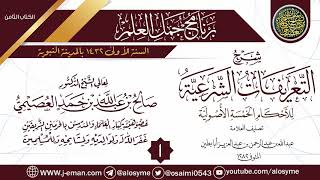 الكتاب الثامن
برنامج جمل العلم
السنة الأولى ١٤٣٩ بالمدينة النبوية
لمعالي الشيخ الدكتور
صالح بن عبد الله بن حمد العصيمي
عضو هيئة كبار العلماء والمدرس بالحرمين الشريفين
غفر الله له ولوالديه ولمشايخه وللمسلمين
شرح
التعريفات الشرعية
للأحكام الخمسة الأصولية
تصنيف العلامة
عبد الله بن عبد الرحمن بن عبد العزيز أبا بطين
١
www.j-eman.com
@osaimi0543
@youtube.com/@alosyme
@alosyme